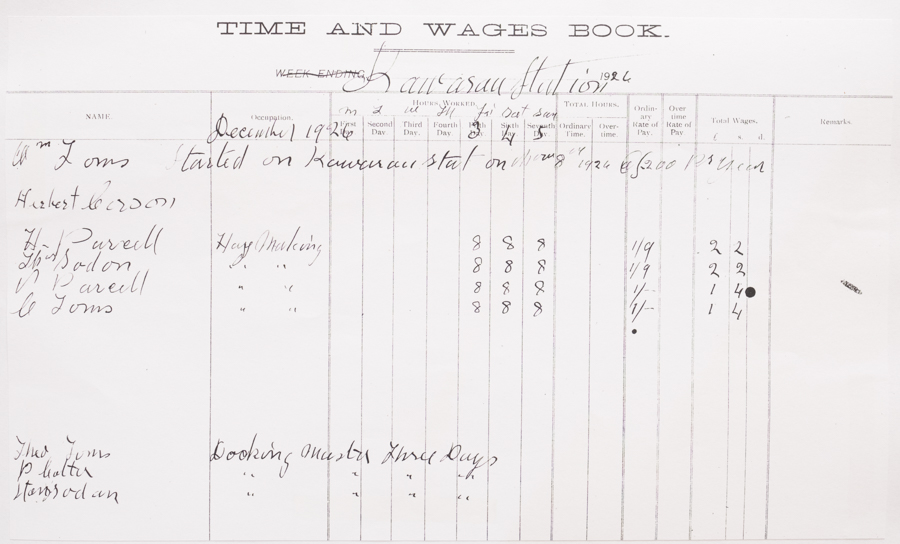 TIME AND WAGES BOOK.
WEEK ENDING Kawarau Station 1924
NAME Occupation. Hours Worked. TOTAL HOURS. Ordinary Rate of Pay. Overtime Rate of Pay. Total Wages. Remarks.
M T W Th Fri Sat Sun
First Day. Second Day. Third Day. Fourth Day. Fifth Day. Sixth Day. Seventh Day. Ordinary Time. Overtime. £ s. d.
December 1924 3 4 5
Wm Toms Started on Kawarau stat on 8th 1924 @ £200 Per Year
Herbert
H. Purcell Hay Making 8 8 8 1/9 2 2
Sodon " " 8 8 8 1/9 2 2
P Purcell " " 8 8 8 1/- 1 4
C Toms " " 8 8 8 1/- 1 4
Thos Toms Docking Muster Three Days
P " " " "
" " " "